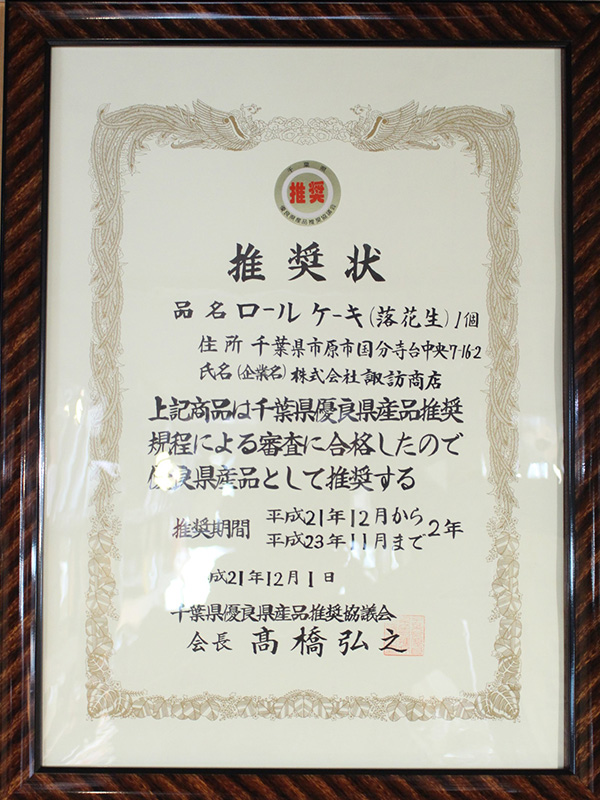 千葉県
推奨
優良県産品推奨協議会
推奨状
品名 ロールケーキ(落花生)1個
住所 千葉県市原市国分寺台中央7-16-2
氏名(企業名) 株式会社諏訪商店
上記商品は千葉県優良県産品推奨
規程による審査に合格したので
優良県産品として推奨する
推奨期間 平成21年12月から
平成23年11月まで 2年
成21年12月1日
千葉県優良県産品推奨協議会
会長 髙橋弘之